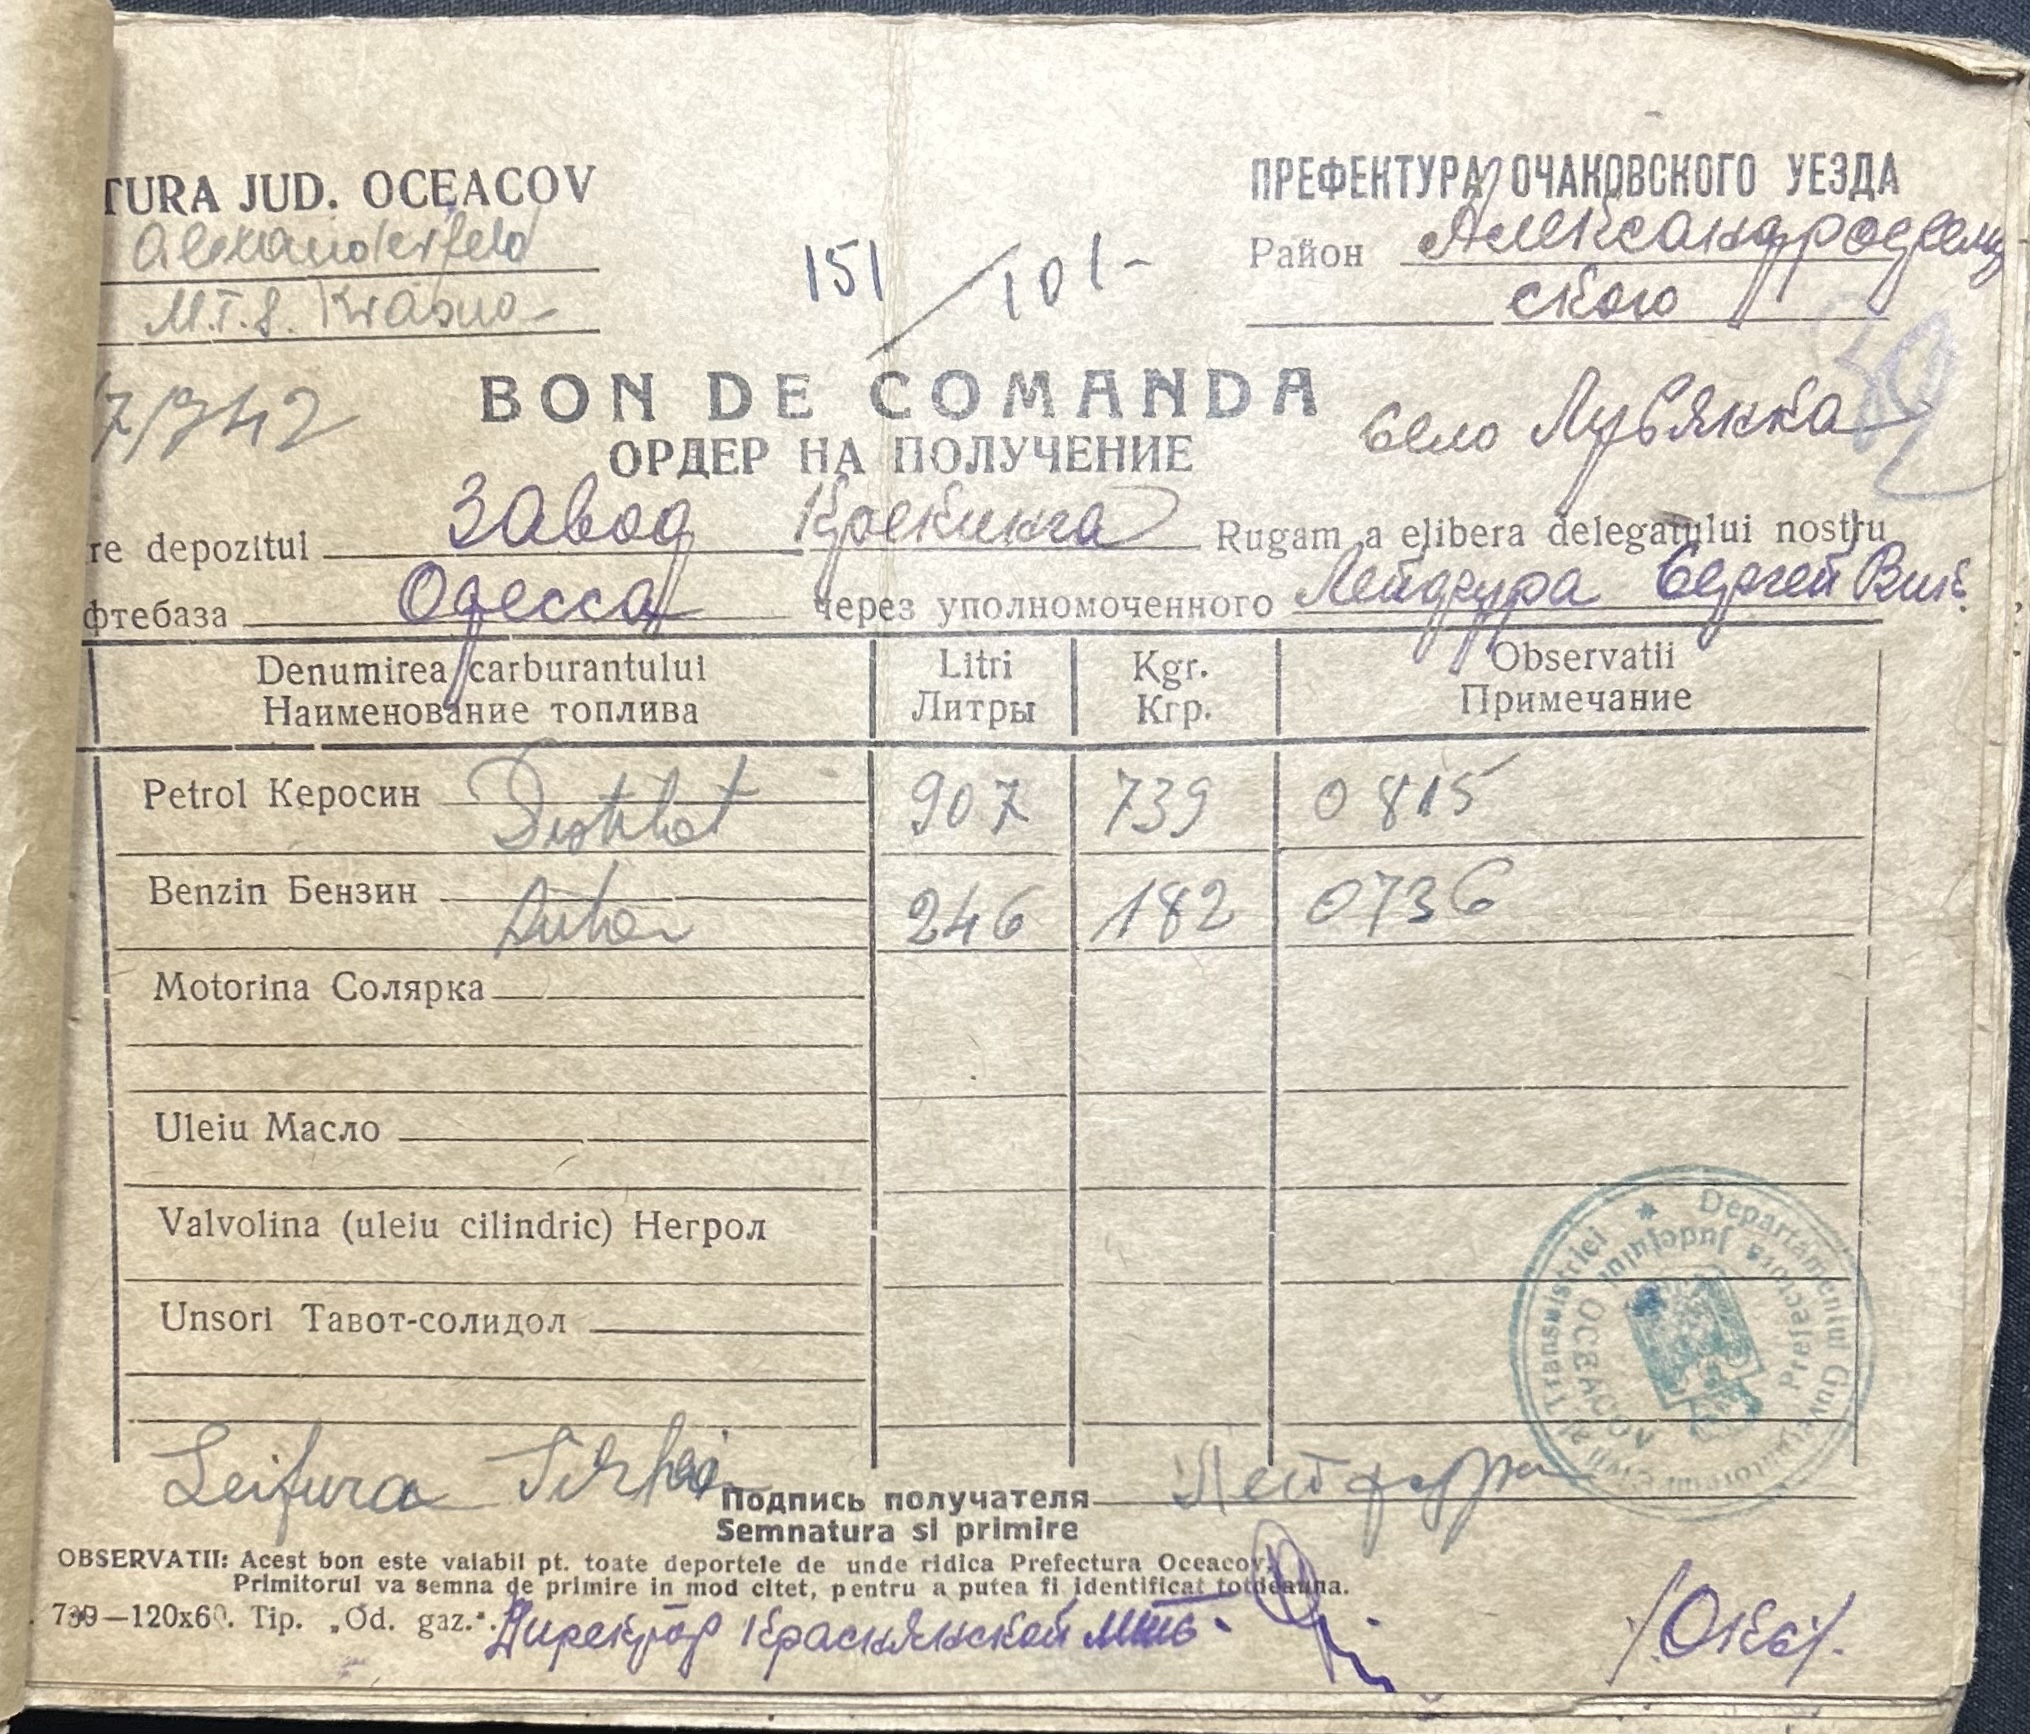 TURA JUD. OCEACOV
ПРЕФЕКТУРА ОЧАКОВСКОГО УЕЗДА
Alexanderfeld
Район Александрофельд
M.T.S. Krasna
ского
151/101-
7/942
BON DE COMANDA
ОРДЕР НА ПОЛУЧЕНИЕ
село Лубянка
re depozitul Завод Крекинга Rugam a elibera delegatului nostru
фтебаза Одесса через уполномоченного Лейфура Сергей Вик.
Denumirea carburantului Litri Kgr. Observatii
Наименование топлива Литры Кгр. Примечание
Petrol Керосин Distilat 907 739 0815
Benzin Бензин Auto 246 182 0736
Motorina Солярка
Uleiu Масло
Valvolina (uleiu cilindric) Негрол
Unsori Тавот-солидол
Departamentul Guvernatorul Civil al Transnistriei
Prefectora Județului OCEACOV
Leifura Serhei
Подпись получателя Лейфура
Semnatura si primire
OBSERVATII: Acest bon este valabil pt. toate deportele de unde ridica Prefectura Oceacov.
Primitorul va semna de primire in mod citet, pentru a putea fi identificat totdeauna.
739—120x60. Tip. „Od. gaz.".
Директор Краснянской мтс.